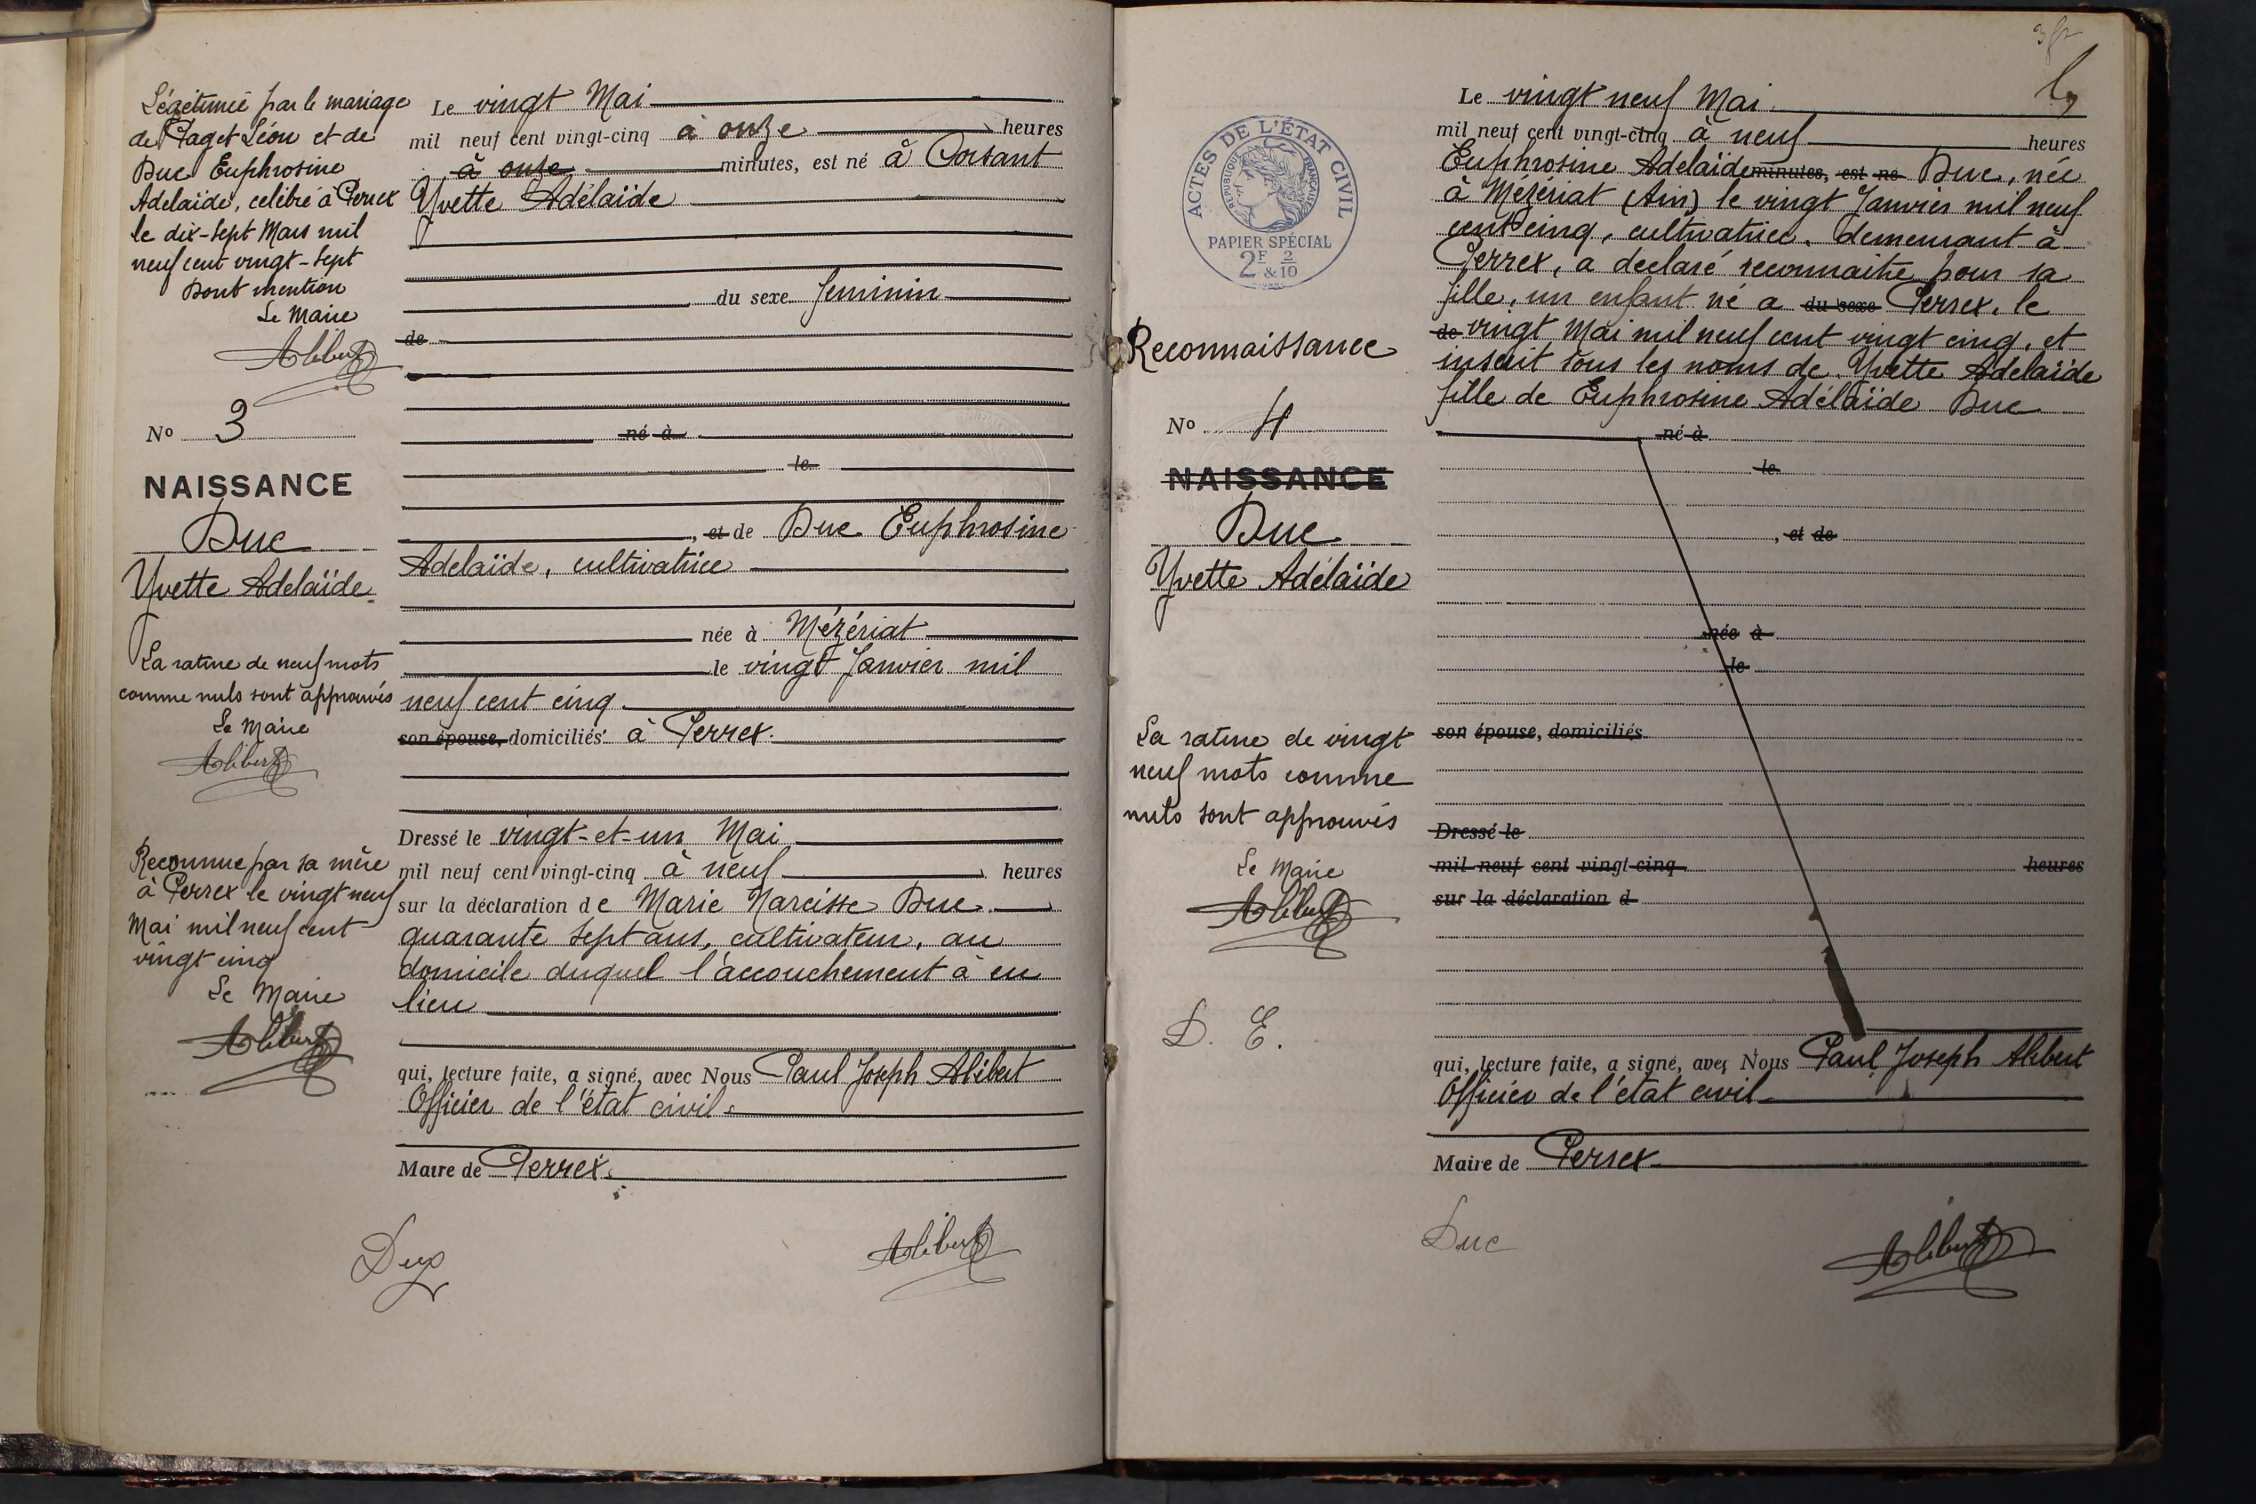 Légétimée par le mariage
de Paget Léon et de
Duc Euphrosine
Adelaïde, célébré à Perrex
le dix-sept Mars mil
neuf cent vingt-sept
Dont mention
Le Maire
Alibert
No 3
NAISSANCE
Duc
Yvette Adelaïde
La rature de neuf mots
comme nuls sont approuvés
Le Maire
Alibert
Reconnue par sa mère
à Perrex le vingt neuf
Mai mil neuf cent
vingt cinq
Le Maire
Alibert
Le vingt Mai
mil neuf cent vingt-cinq à onze heures
à onze minutes, est né à Corsant
Yvette Adélaïde
du sexe feminin
de
né à
le
, et de Duc Euphrosine
Adelaïde, cultivatrice
née à Mézériat
le vingt Janvier mil
neuf cent cinq
son épouse, domiciliés à Perrex.
Dressé le vingt-et-un Mai
mil neuf cent vingt-cinq à neuf heures
sur la déclaration de Marie Narcisse Duc
quarante sept ans, cultivateur, au
domicile duquel l'accouchement à eu
lieu
qui, lecture faite, a signé, avec Nous Paul Joseph Alibert
Officier de l'état civil
Maire de Perrex.
Duc
Alibert
ACTES DE L'ÉTAT CIVIL
RÉPUBLIQUE FRANÇAISE
PAPIER SPÉCIAL
2F 2
& 10
Reconnaissance
No 4
NAISSANCE
Duc
Yvette Adélaïde
La rature de vingt
neuf mots comme
nuls sont approuvés
Le Maire
Alibert
D. E.
Le vingt neuf Mai
mil neuf cent vingt-cinq à neuf heures
Euphrosine Adelaïde minutes, est né Duc, née
à Mézériat (Ain) le vingt Janvier mil neuf
cent cinq, cultivatrice, demeurant à
Perrex, a declaré reconnaitre pour sa
fille, un enfant né a du sexe Perrex, le
de vingt Mai mil neuf cent vingt cinq, et
inscrit sous les noms de Yvette Adelaïde
fille de Euphrosine Adélaïde Duc
né à
le
, et de
née à
le
son épouse, domiciliés
Dressé le
mil neuf cent vingt-cinq heures
sur la déclaration d
qui, lecture faite, a signé, avec Nous Paul Joseph Alibert
Officier de l'état civil
Maire de Perrex
Duc
Alibert